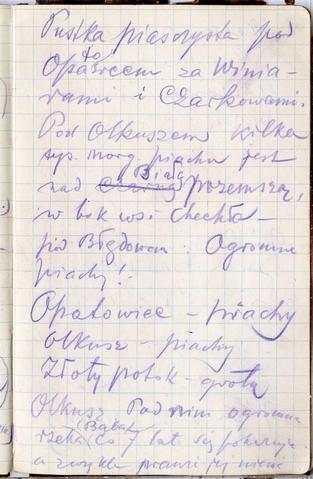 Pustka piasczysta pod
Opatowcem za Winia-
rami i Czarkowami.
Pod Olkuszem kilka
tys. morg piachu jest
nad Białą przemszą,
w bok wsi Chechła –
pod Błędowem. Ogromne
piachy!
Opatowiec – piachy
Olkusz – piachy
Złoty potok – groty
Olkusz Pod nim ogromna
rzeka (Baba) co 7 lat się pokazuje
a zwykle prawie jej niema